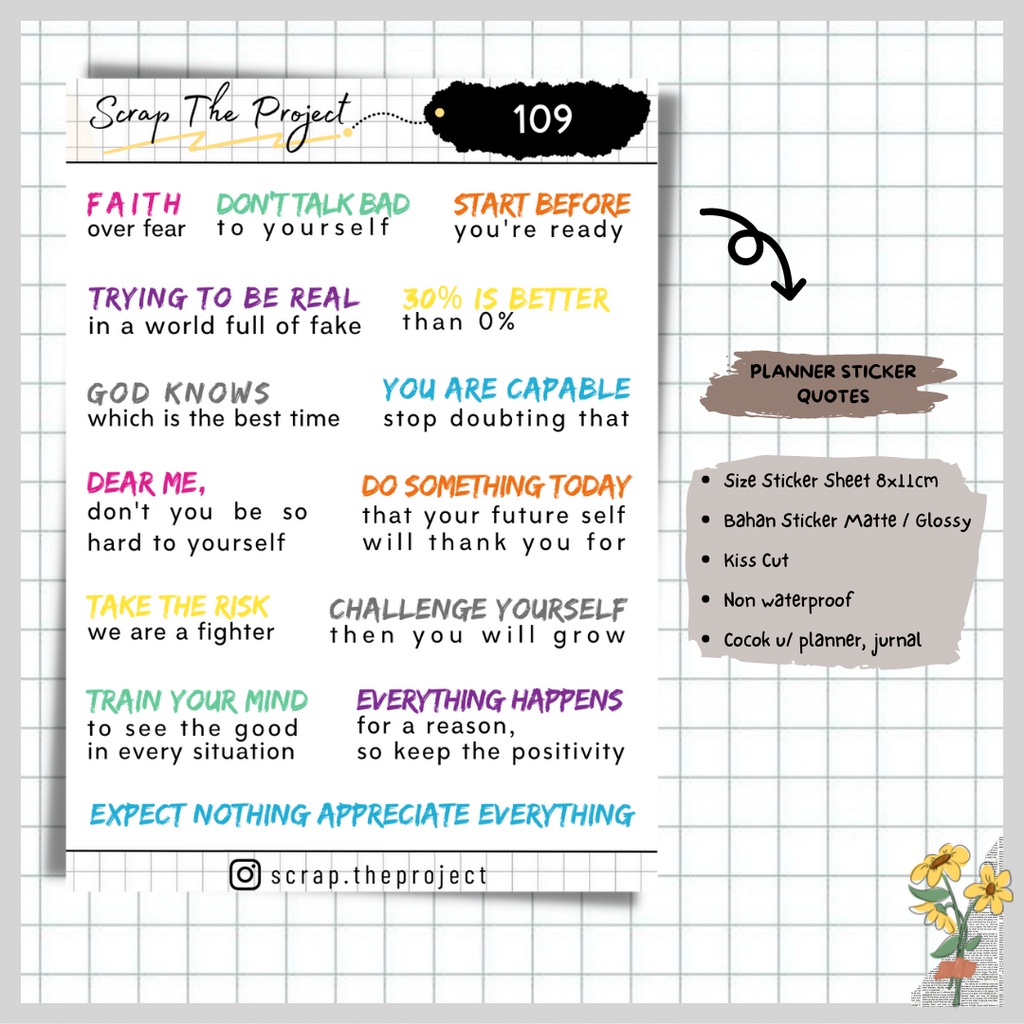 Scrap The Project
109
FAITH
over fear
DON'T TALK BAD
to yourself
START BEFORE
you're ready
TRYING TO BE REAL
in a world full of fake
30% IS BETTER
than 0%
GOD KNOWS
which is the best time
YOU ARE CAPABLE
stop doubting that
DEAR ME,
don't you be so
hard to yourself
DO SOMETHING TODAY
that your future self
will thank you for
TAKE THE RISK
we are a fighter
CHALLENGE YOURSELF
then you will grow
TRAIN YOUR MIND
to see the good
in every situation
EVERYTHING HAPPENS
for a reason,
so keep the positivity
EXPECT NOTHING APPRECIATE EVERYTHING
scrap.theproject
PLANNER STICKER
QUOTES
• Size Sticker Sheet 8x11cm
• Bahan Sticker Matte / Glossy
• Kiss Cut
• Non waterproof
• Cocok u/ planner, jurnal